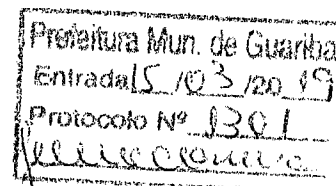 Prefeitura Mun. de Guariba
Entrada 15 /03 /20 19
Protocolo Nº 1301